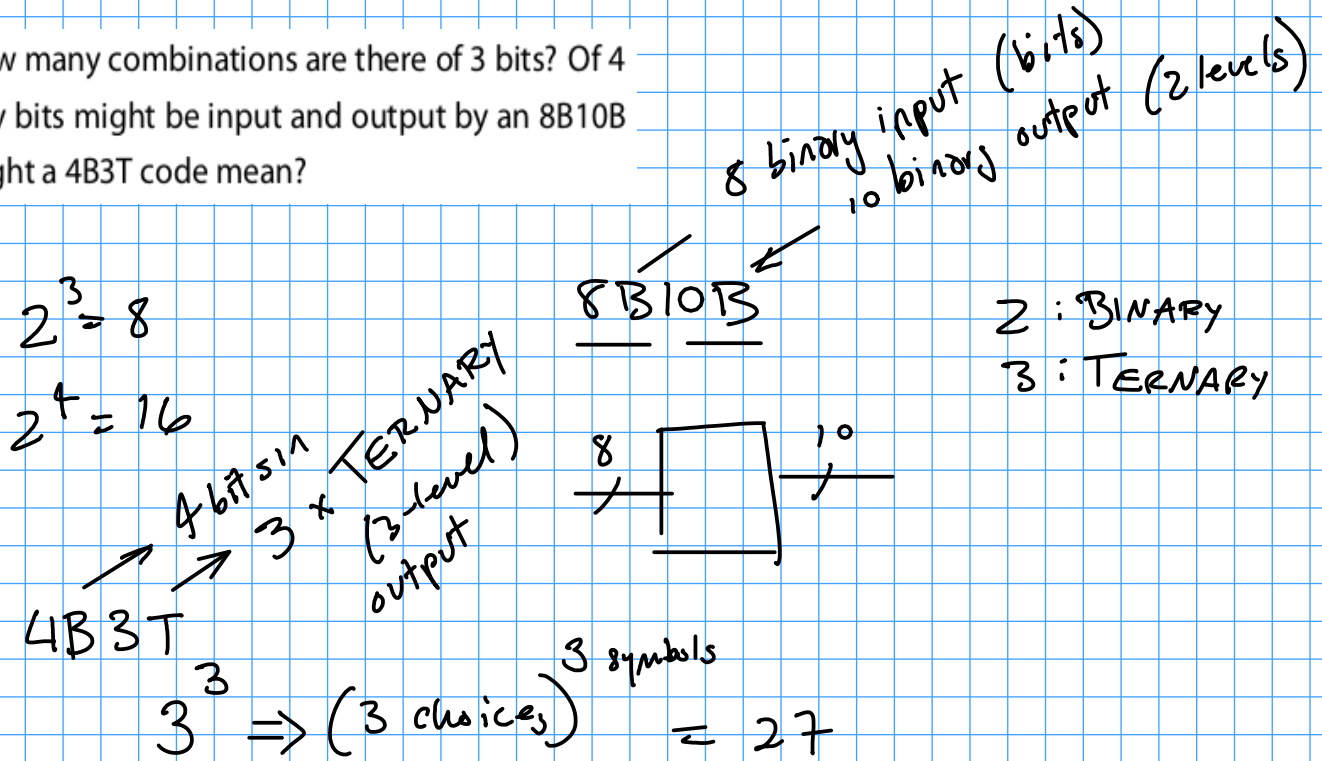 w many combinations are there of 3 bits? Of 4
y bits might be input and output by an 8B10B
ght a 4B3T code mean?
8 binary input (bits)
10 binary output (2 levels)
8B10B
2 : BINARY
3 : TERNARY
2³ = 8
2⁴ = 16
8
10
4 bits in
3 x TERNARY
(3-level)
output
4B3T
3³ ⇒ (3 choices)³ symbols = 27